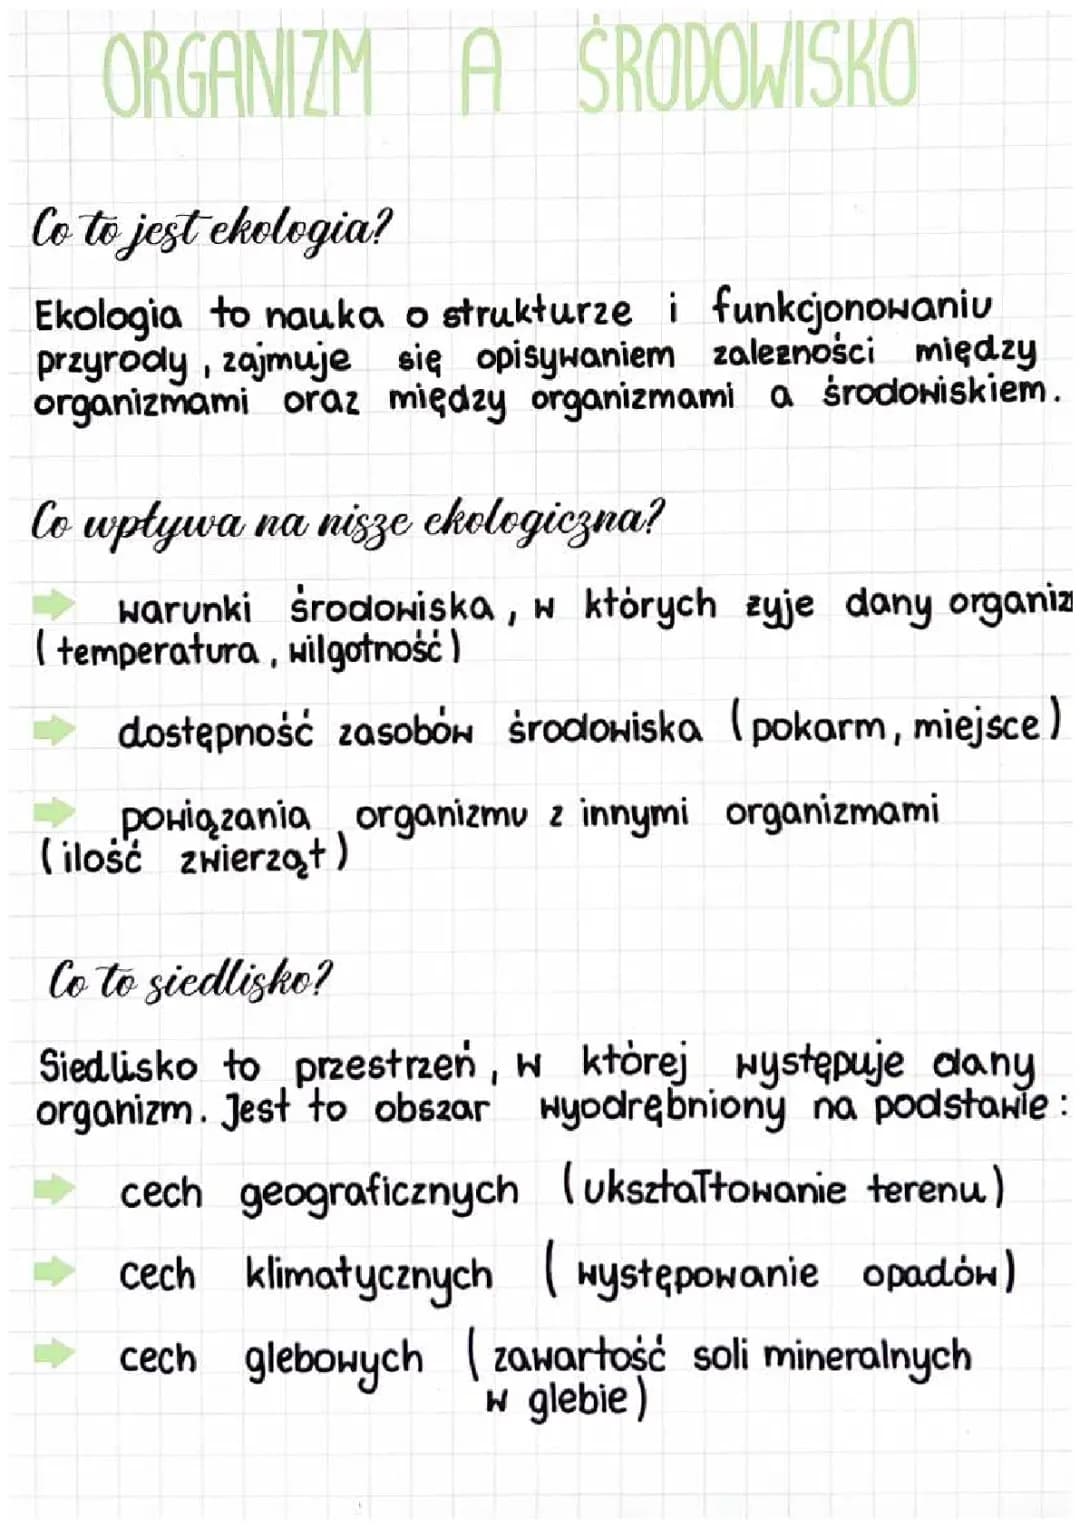 ORGANIZM A ŚRODOWISKO
Co to jest ekologia?
Ekologia to nauka o strukturze i funkcjonowaniu
przyrody, zajmuje się opisywaniem zależności między
organizmami oraz między organizmami a środowiskiem.
Co wpływa na niszę ekologiczna?
warunki środowiska, w których żyje dany organiz
(temperatura, wilgotność)
dostępność zasobów środowiska (pokarm, miejsce)
powiązania organizmu z innymi organizmami
(ilość zwierząt)
Co to siedlisko?
Siedlisko to przestrzeń, w której występuje dany
organizm. Jest to obszar wyodrębniony na podstawie:
cech geograficznych (ukształtowanie terenu)
cech klimatycznych (występowanie opadów)
cech glebowych (zawartość soli mineralnych
w glebie)